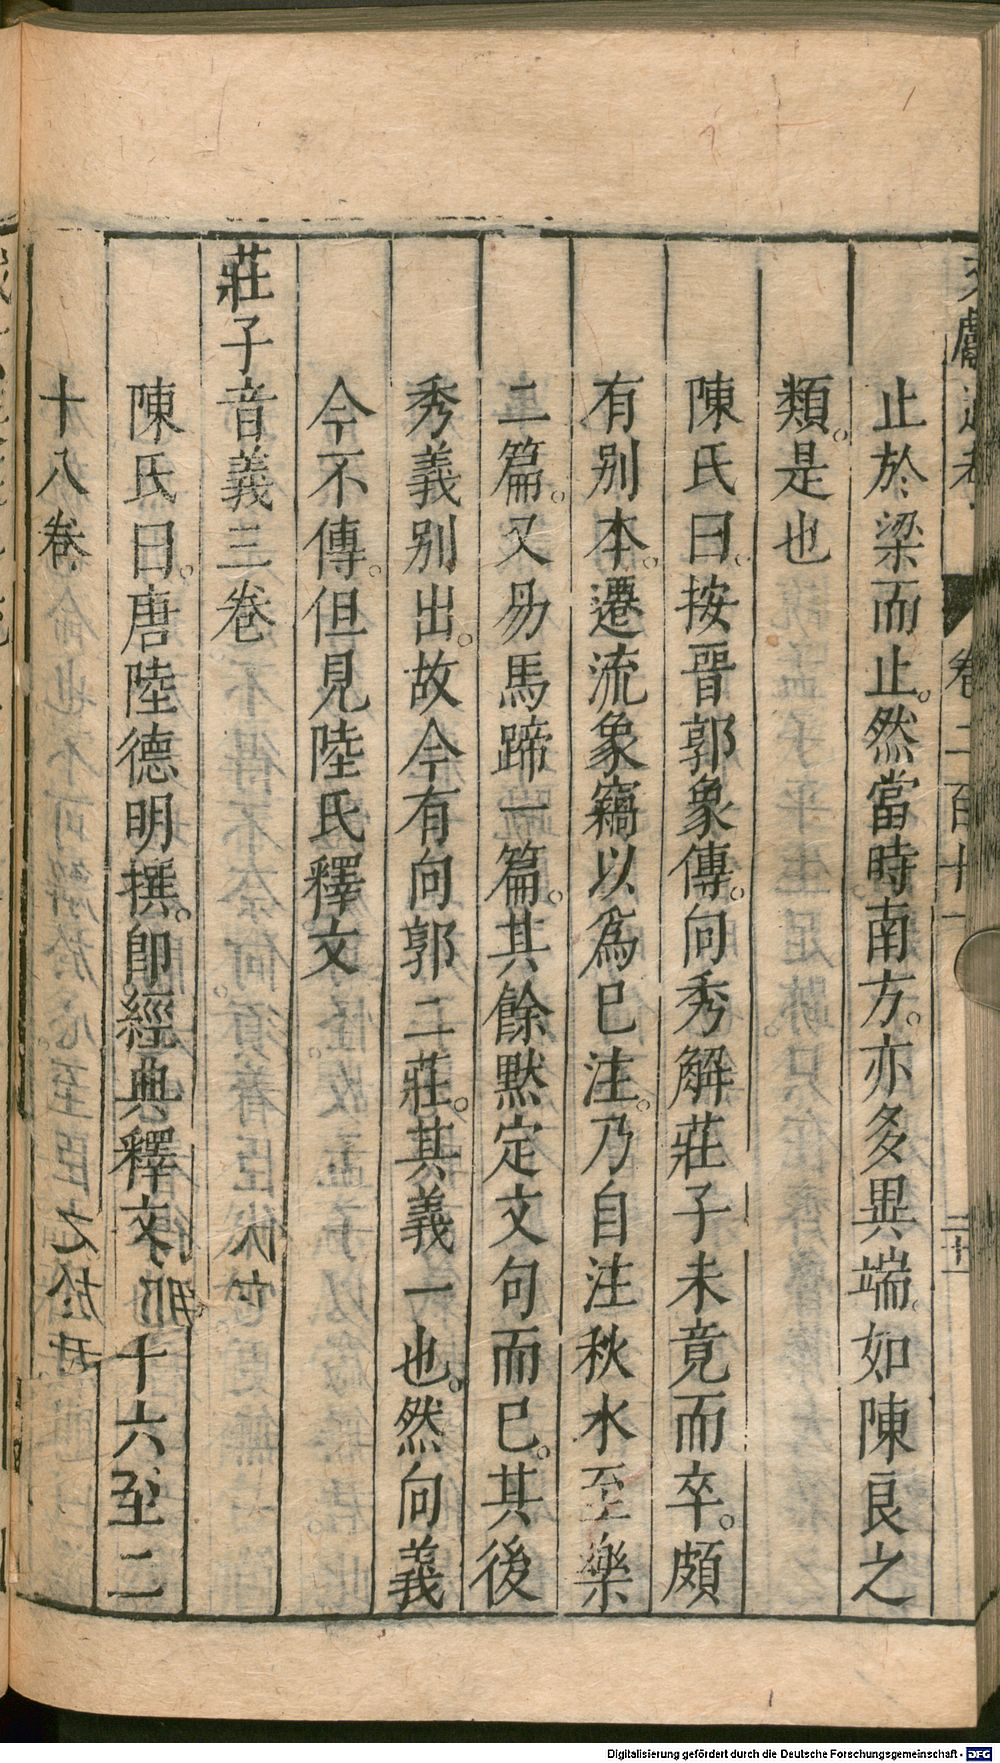 文獻通考 卷二百十一
止於梁而止。然當時南方。亦多異端。如陳良之
類。是也
陳氏曰。按晉郭象傳。向秀解莊子未竟而卒。頗
有别本。遷流象竊以爲己注。乃自注秋水至樂
二篇。又易馬蹄一篇。其餘黙定文句而已。其後
秀義别出。故今有向郭二莊。其義一也。然向義
今不傳。但見陸氏釋文
莊子音義三卷
陳氏曰。唐陸德明撰。卽經典釋文 十六至二
十八卷
Digitalisierung gefördert durch die Deutsche Forschungsgemeinschaft - DFG